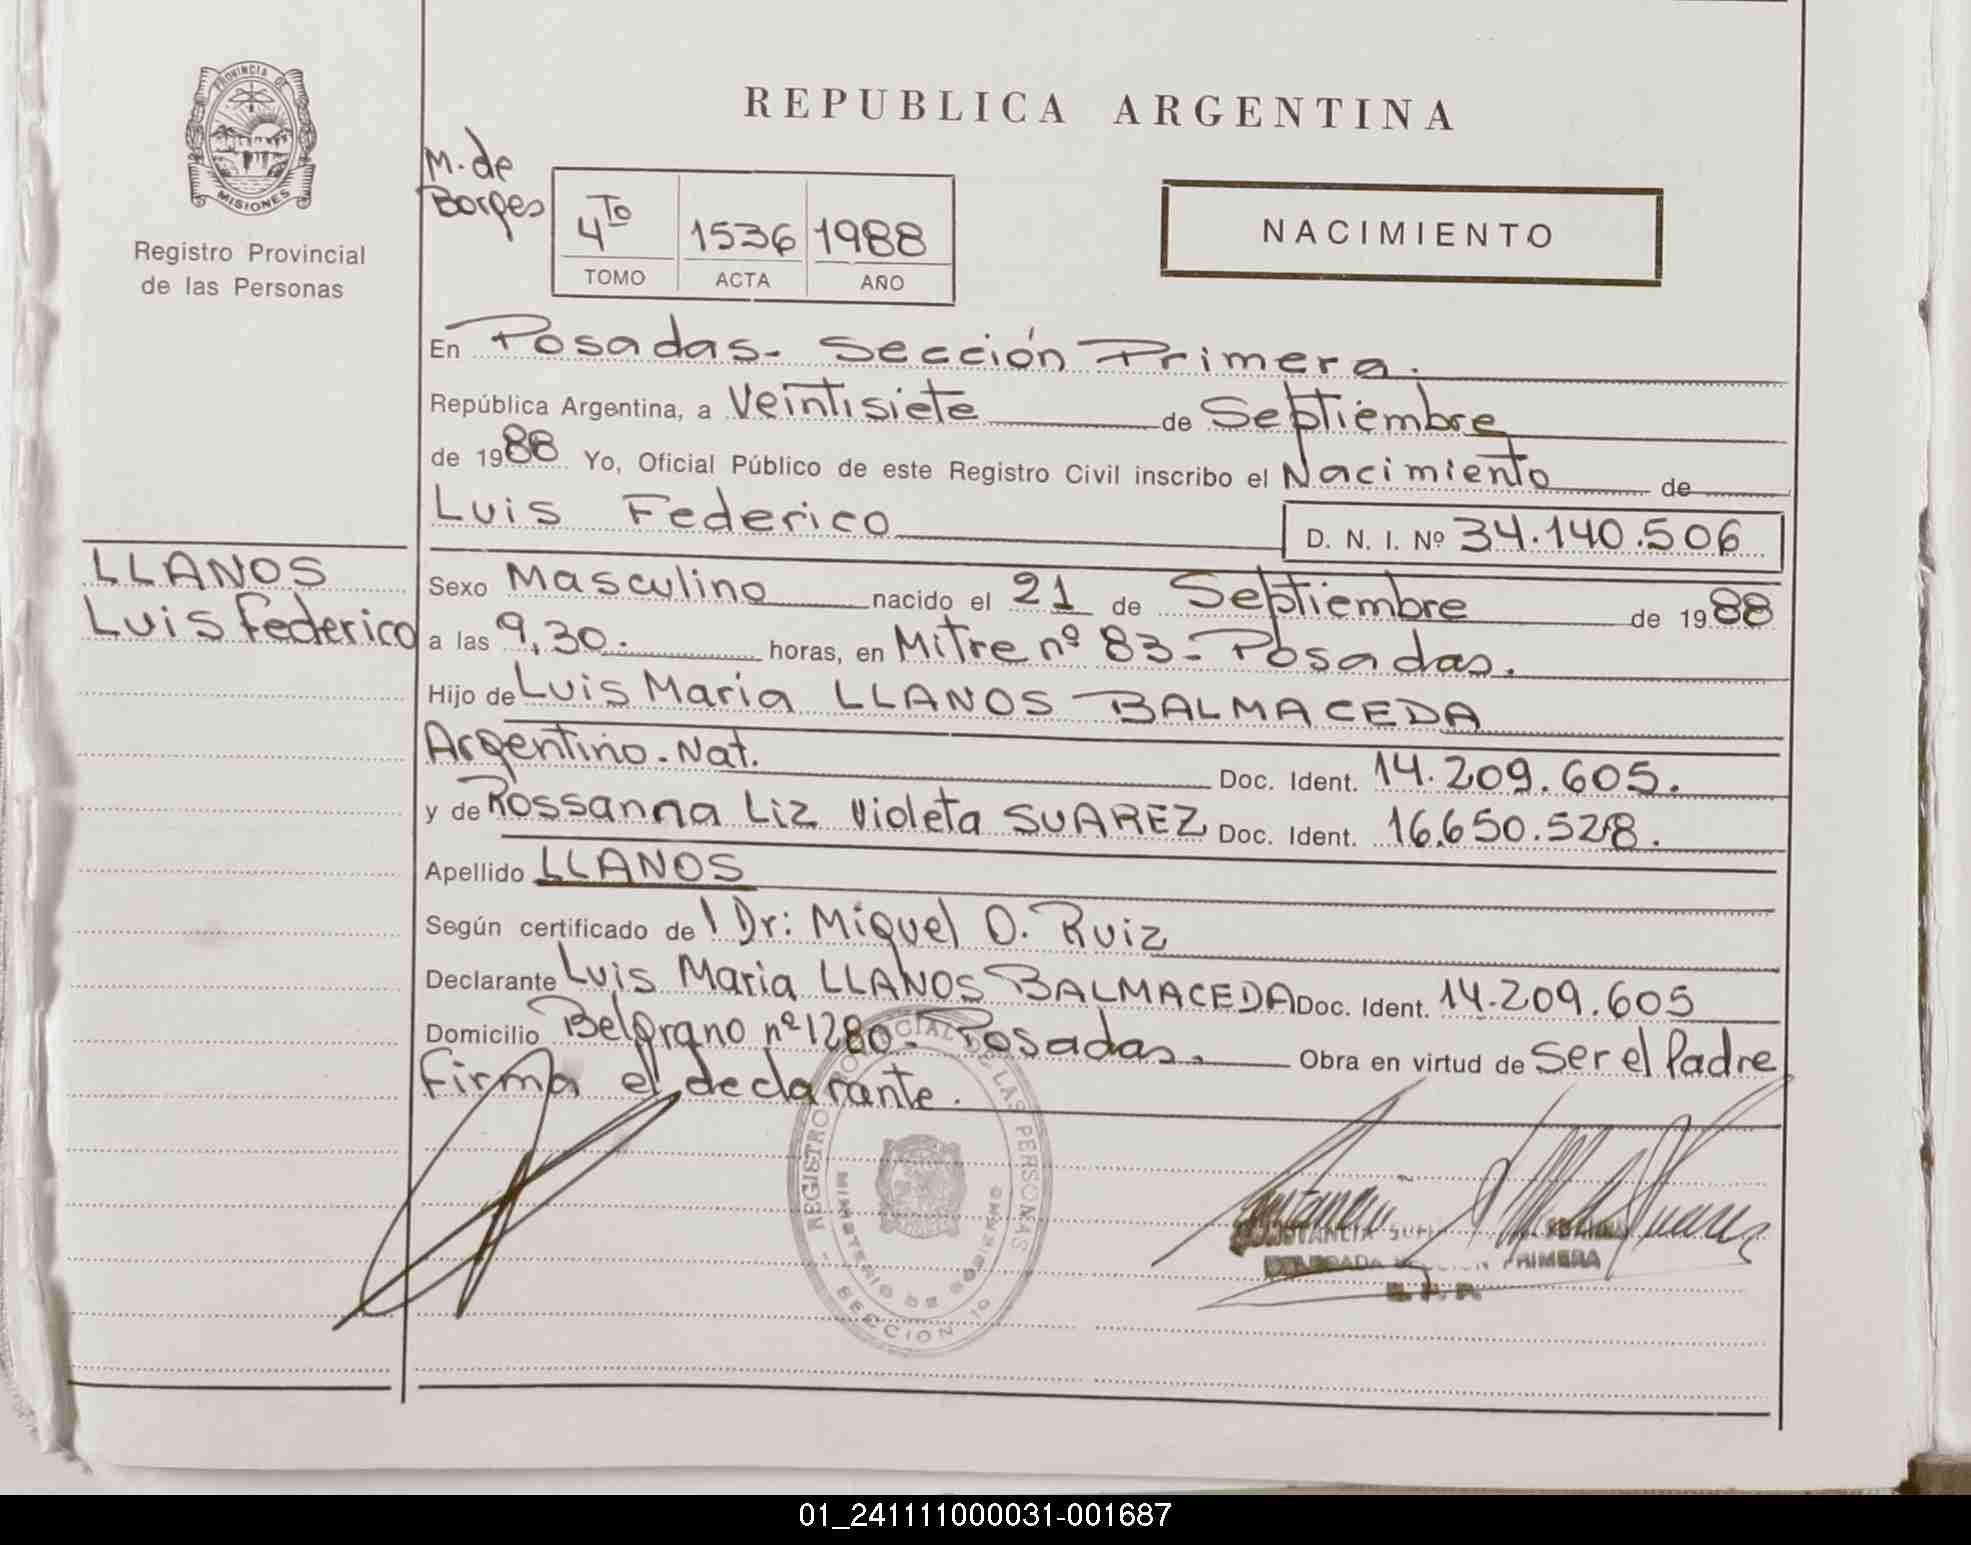 PROVINCIA DE
MISIONES
Registro Provincial
de las Personas
REPUBLICA ARGENTINA
M. de
Borges
4To 1536 1988
TOMO ACTA AÑO
NACIMIENTO
En Posadas- Sección Primera.
República Argentina, a Veintisiete de Septiembre
de 1988 Yo, Oficial Público de este Registro Civil inscribo el Nacimiento de
Luis Federico
D. N. I. Nº 34.140.506
LLANOS
Luis Federico
Sexo Masculino nacido el 21 de Septiembre de 1988
a las 9,30. horas, en Mitre nº 83- Posadas.
Hijo de Luis Maria LLANOS BALMACEDA
Argentino. Nat. Doc. Ident. 14.209.605.
y de Rossanna Liz Violeta SUAREZ Doc. Ident. 16.650.528.
Apellido LLANOS
Según certificado de Dr: Miguel O. Ruiz
Declarante Luis Maria LLANOS BALMACEDA Doc. Ident. 14.209.605
Domicilio Belgrano nº 1280- Posadas. Obra en virtud de Ser el Padre
Firma el declarante.
REGISTRO PROVINCIAL DE LAS PERSONAS
MINISTERIO DE GOBIERNO
SECCION 1ª
CONSTANCIA
DELEGADA SECCION PRIMERA
R. P. P.
01_241111000031-001687